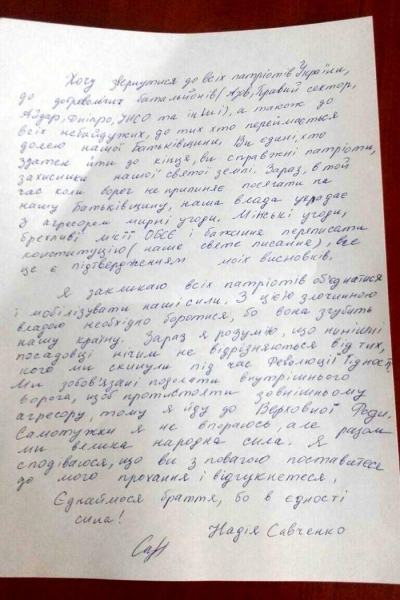 Хочу звернутися до всіх патріотів України,
до добровольчих батальйонів (Азов, Правий сектор,
Айдар, Дніпро, УНСО та інші), а також до
всіх небайдужих, до тих хто переймається
долею нашої Батьківщини. Ви єдині, хто
здатен йти до кінця, ви справжні патріоти,
захисники нашої святої землі. Зараз, в той
час коли ворог не припиняє посягати на
нашу Батьківщину, наша влада укладає
з агресором мирні угоди. Мінські угоди,
брехливі місії ОБСЄ і бажання переписати
конституцію (наше святе писаніє), все
це є підтвердженням моїх висновків.
Я закликаю всіх патріотів об'єднатися
і мобілізувати наші сили. З цією злочинною
владою необхідно боротися, бо вона згубить
нашу країну. Зараз я розумію, що нинішні
посадовці нічим не відрізняються від тих,
кого ми скинули під час Революції Гідності.
Ми зобов'язані подолати внутрішнього
ворога, щоб протистояти зовнішньому
агресору, тому я йду до Верховної Ради.
Самотужки я не впораюсь, але разом
ми велика народна сила. Я
сподіваюся, що ви з повагою поставитесь
до мого прохання і відгукнетеся.
Єднаймося браття, бо в єдності
сила!
Надія Савченко